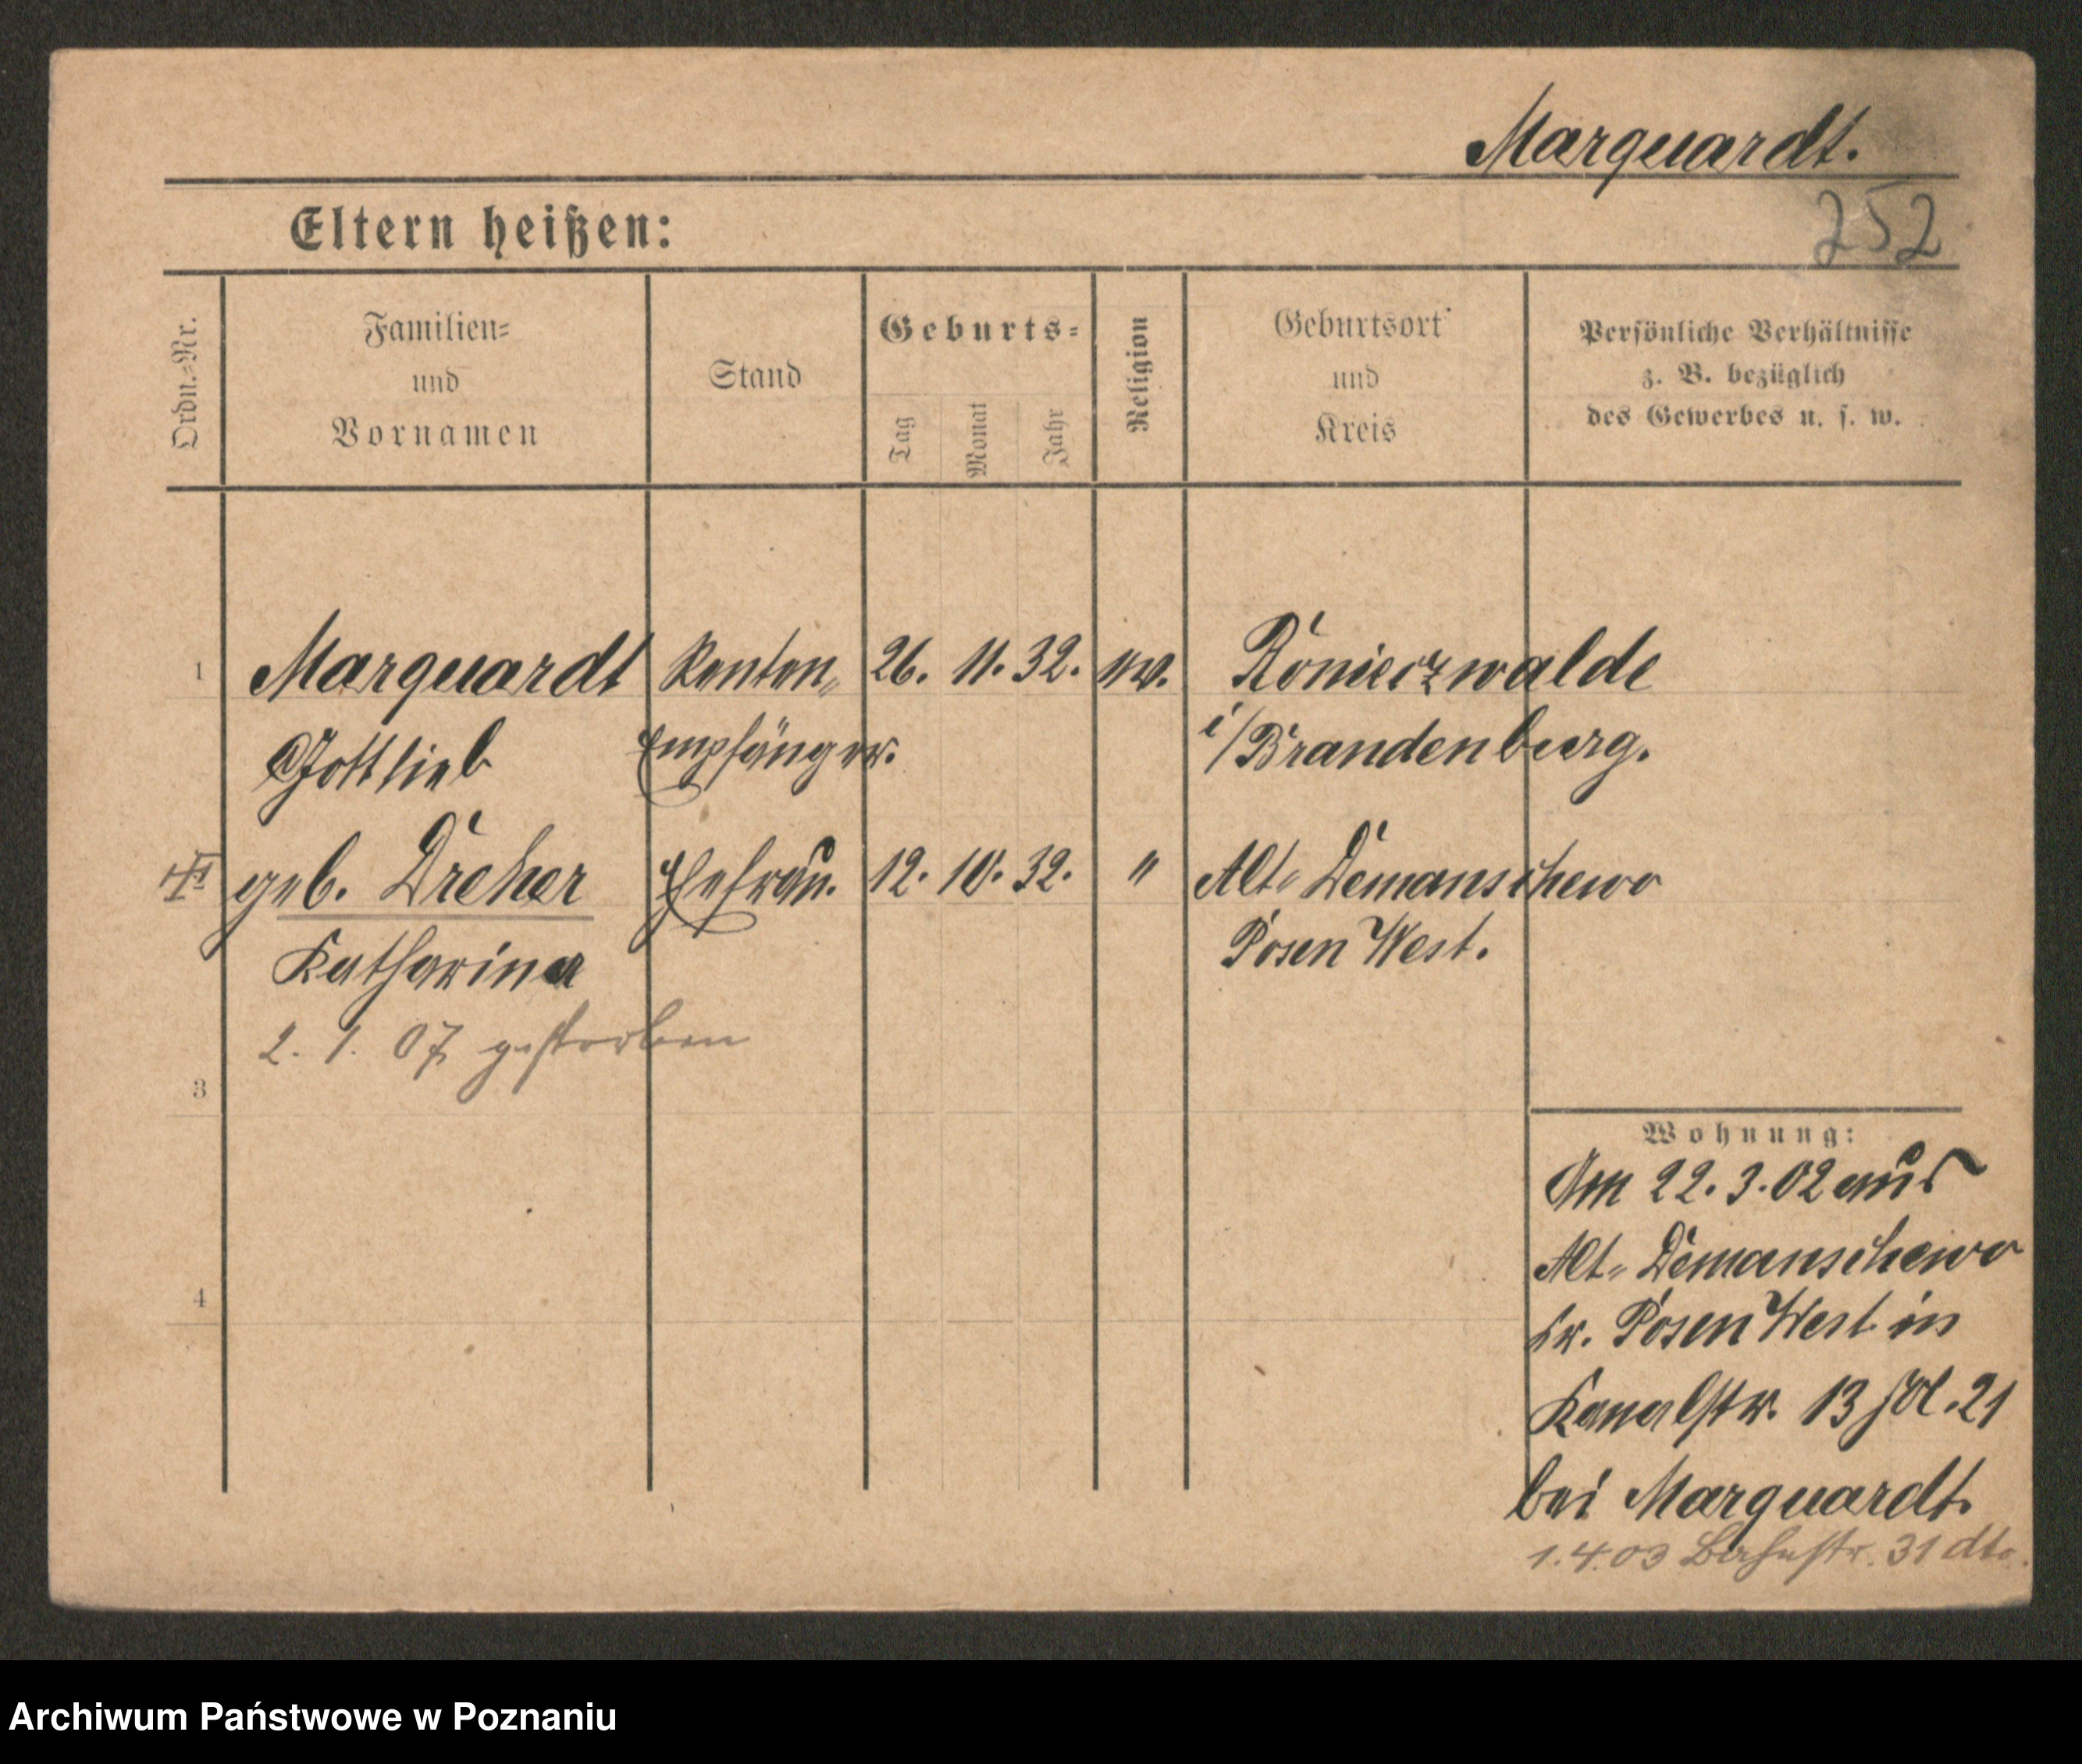 Marquardt.
252
Eltern heißen:
Ordn.-Nr.
Familien-
und
Vornamen
Stand
Geburts-
Tag
Monat
Jahr
Religion
Geburtsort
und
Kreis
Persönliche Verhältnisse
z. B. bezüglich
des Gewerbes u. s. w.
1 Marquardt Renten- 26. 11. 32. ev.
Gottlieb Empfänger. i/Brandenburg.
geb. Dreher Ehefrau. 12. 10. 32. " Alt-Demanschewo
Katharina Posen West.
2. 1. 07 gestorben
3
4
Wohnung:
Am 22. 3. 02 aus
Alt-Demanschewo
Kr. Posen West in
Kanalstr. 13 II.21
bei Marquardt.
1.4.03 Bahnstr. 31 dto.
Archiwum Państwowe w Poznaniu